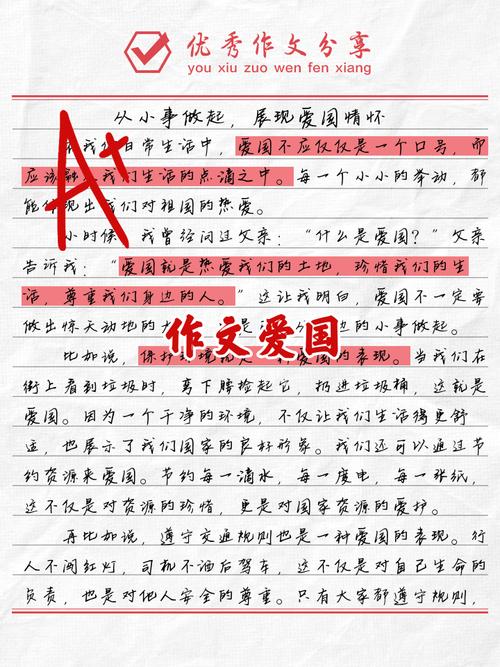 优秀作文分享
you xiu zuo wen fen xiang
从小事做起，展现爱国情怀
A+
我们日常生活中，爱国不应仅仅是一个口号，而
应该融入我们生活的点滴之中。每一个小小的举动，都
能体现出我们对祖国的热爱。
小时候，我曾经问过父亲：“什么是爱国？”父亲
告诉我：“爱国就是热爱我们的土地，珍惜我们的生
活，尊重我们身边的人。”这让我明白，爱国不一定要
做出惊天动地的大 边的小事做起。
作文爱国
比如说，保护环境就是 爱国的表现。当我们在
街上看到垃圾时，弯下腰捡起它，扔进垃圾桶，这就是
爱国。因为一个干净的环境，不仅让我们生活得更舒
适，也展示了我们国家的良好形象。我们还可以通过节
约资源来爱国。节约每一滴水，每一度电，每一张纸，
这不仅是对资源的珍惜，更是对国家资源的爱护。
再比如说，遵守交通规则也是一种爱国的表现。行
人不闯红灯，司机不酒后驾车，这不仅是对自己生命的
负责，也是对他人安全的尊重。只有大家都遵守规则，